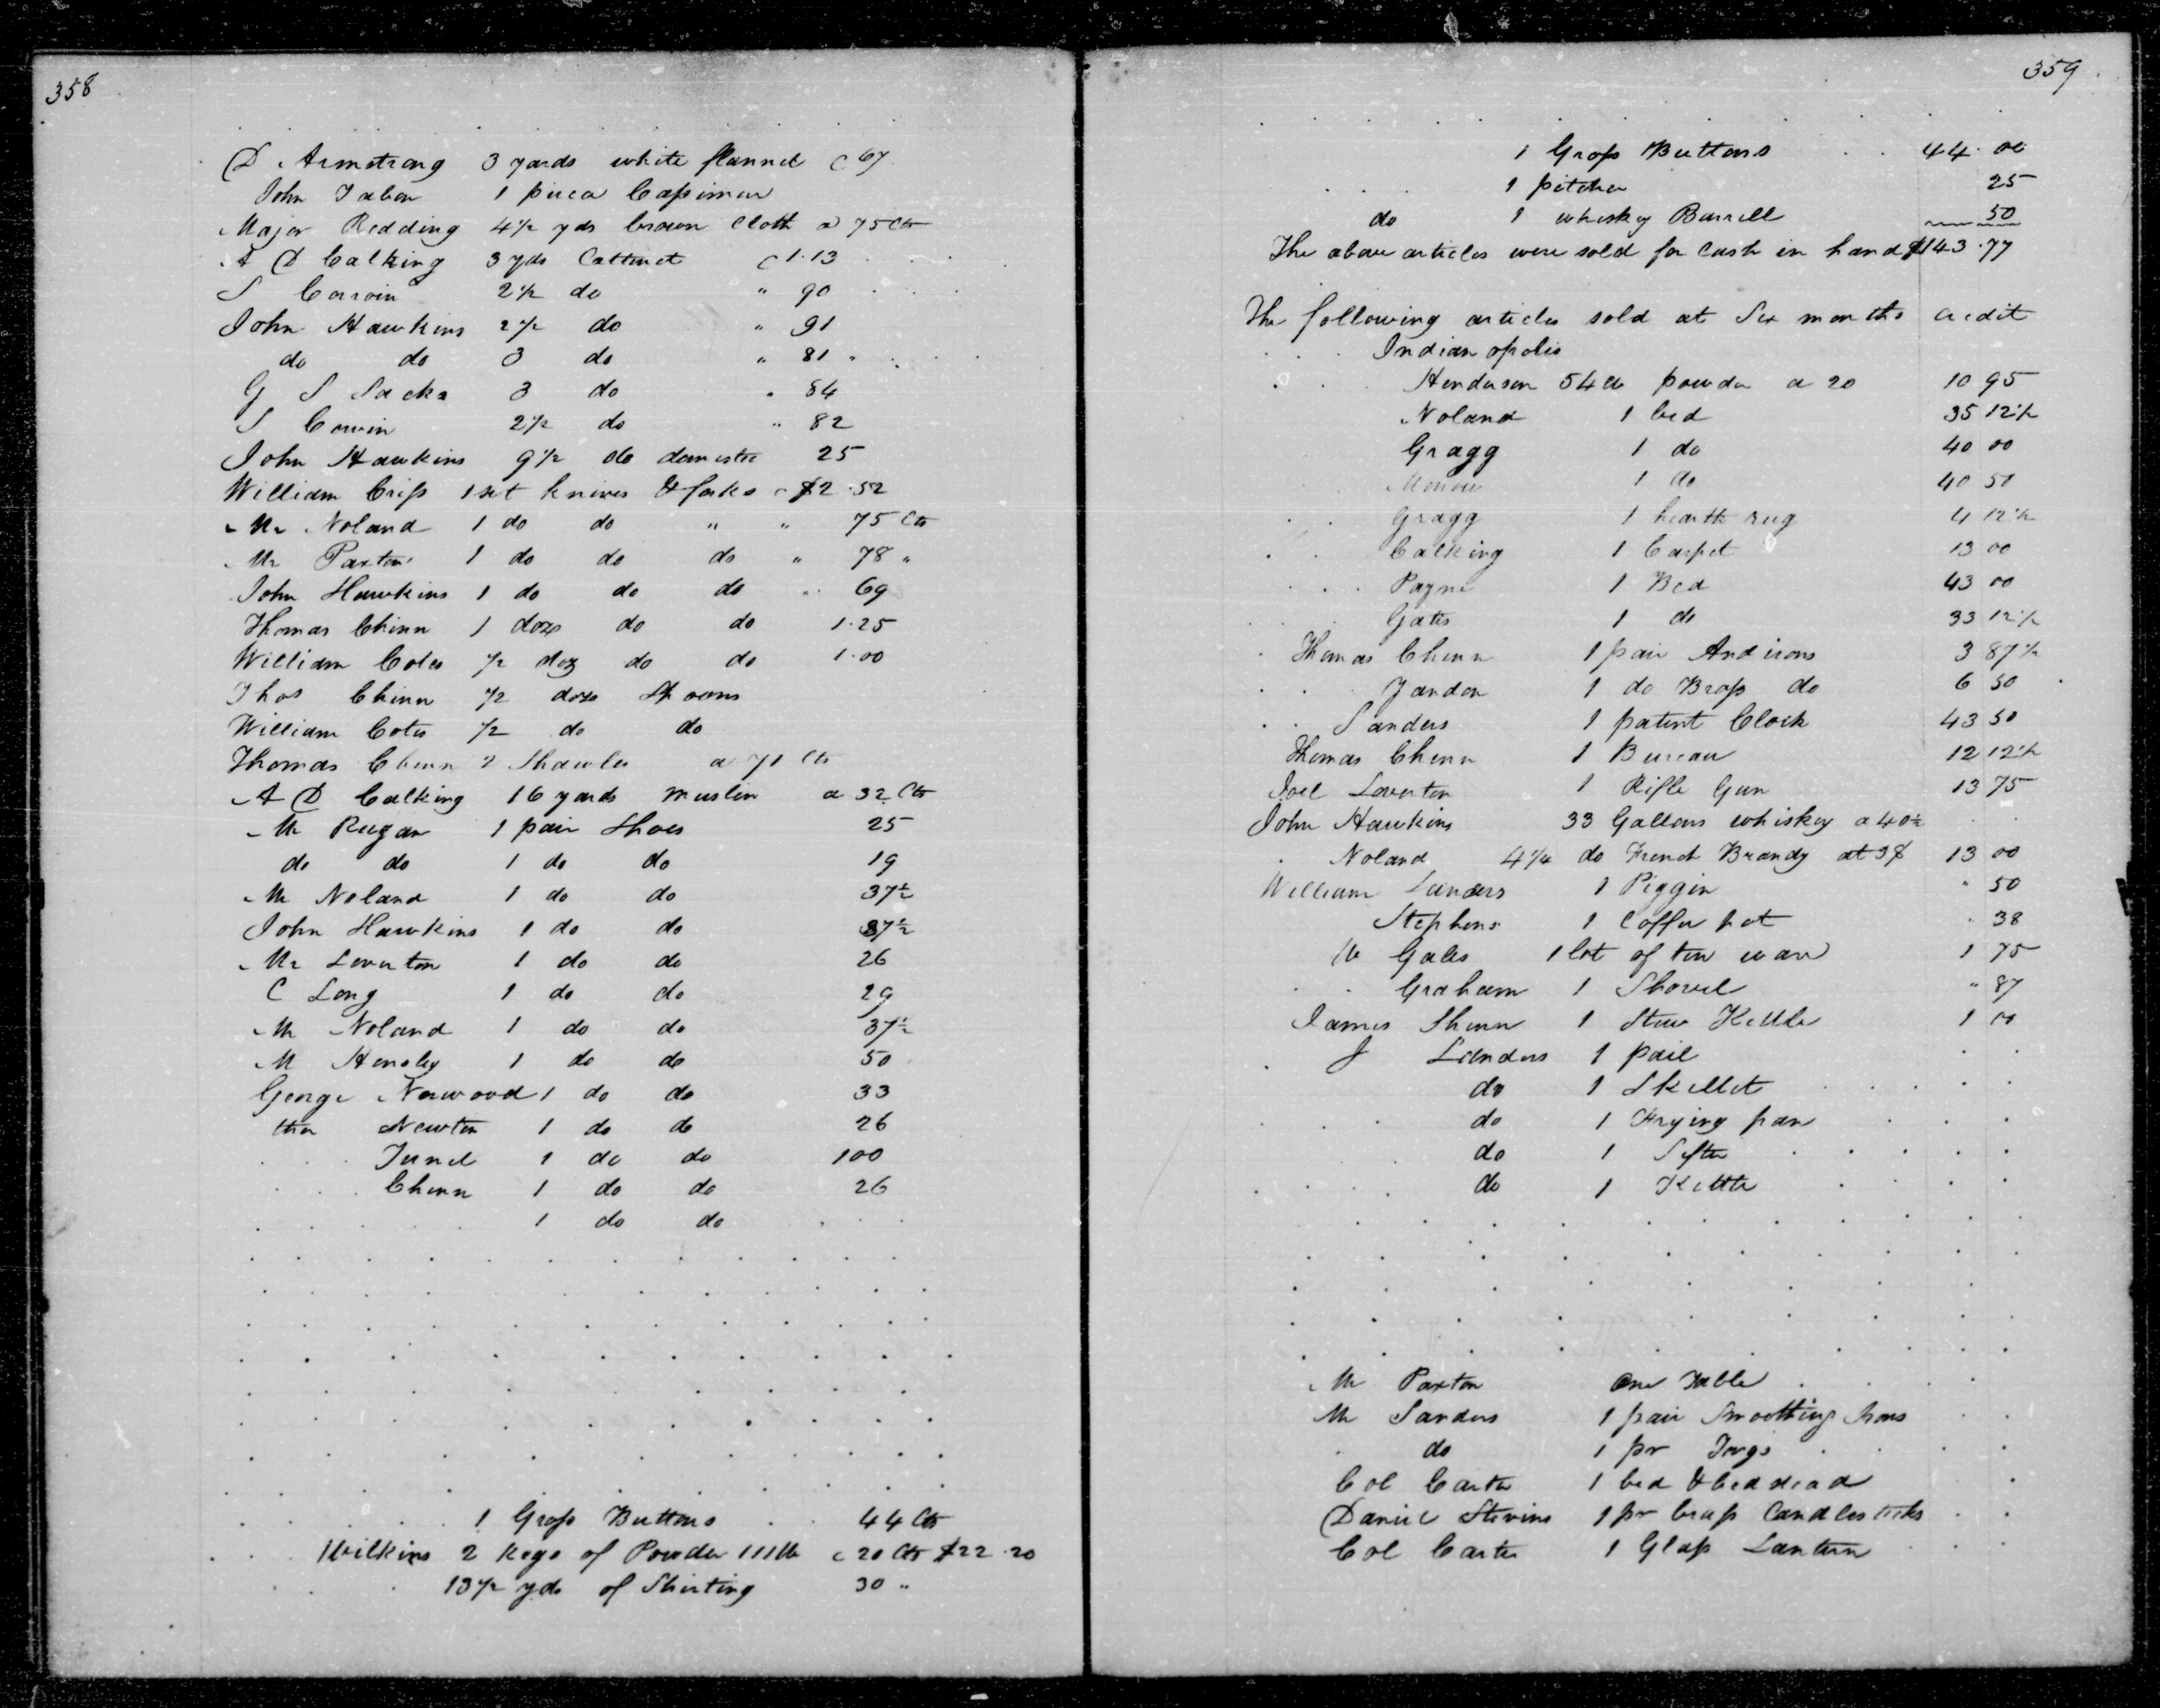 358
D Armstrong 3 yards white flannel @ 67
John Tabor 1 piece Cassimere
Major Redding 4½ yds brown Cloth a 75 Cts
A D Calking 3 yds Cattinet @ 1.13
S Corwin 2½ do " 90
John Hawkins 2½ do " 91
do do 3 do " 81 "
G S Sacks 3 do " 84
S Corwin 2½ do " 82
John Hawkins 9½ do domestic 25
William Criss 1 set knives & forks @ $2.52
Mr Noland 1 do do " " 75 Cts
Mr Paxton 1 do do do " 78 "
John Hawkins 1 do do do " 69
Thomas Chinn 1 doze do do 1.25
William Coles ½ doz do do 1.00
Thos Chinn ½ doze Spoons
William Cotes ½ do do
Thomas Chinn 2 Shawles a 71 Cts
A D Calking 16 yards muslin a 32 Cts
Mr Rugan 1 pair Shoes 25
do do 1 do do 19
Mr Noland 1 do do 37½
John Hawkins 1 do do 37½
Mr Leverton 1 do do 26
C Long 1 do do 29
Mr Noland 1 do do 37½
M Hensley 1 do do 50
George Norwood 1 do do 33
ther Newton 1 do do 26
1 do do 100
Chinn 1 do do 26
1 do do
1 Gross Buttons 44 Cts
Wilkins 2 kegs of Powder 111 lb @ 20 Cts $22.20
13½ yds of Shirting 30 "
359
1 Gross Buttons 44.00
1 pitcher 25
do 1 whiskey Barrell 50
The above articles were sold for Cash in hand $143.77
The following articles sold at Six months credit
Indianopolis
Henderson 54 lb powder a 20 10 95
Noland 1 bed 35 12½
Gragg 1 do 40 00
1 do 40 50
Gragg 1 hearth rug 4 12½
Calking 1 Carpet 13 00
Payne 1 Bed 43 00
Gates 1 do 33 12½
Thomas Chinn 1 pair Andirons 3 87½
Yandon 1 do Brass do 6 50
Sanders 1 patent Clock 43 50
Thomas Chinn 1 Bureau 12 12½
Joel Leverton 1 Rifle Gun 13 75
John Hawkins 33 Gallons whiskey a 40½
Noland 4¼ do French Brandy at 3$ 13 00
William Landers 1 Piggin " 50
Stephens 1 Coffee pot " 38
Gales 1 lot of tin ware 1 75
Graham 1 Shovel " 87
James Shinn 1 Stew Kettle 1 00
J Landers 1 pail
do 1 Skillet
do 1 Frying pan
do 1 Sifter
do 1 Kettle
Mr Paxton One Table
Mr Sanders 1 pair Smoothing Irons
do 1 pr Tongs
Col Carter 1 bed & bedstead
Daniel Stevins 1 pr brass Candlesticks
Col Carter 1 Glass Lantern